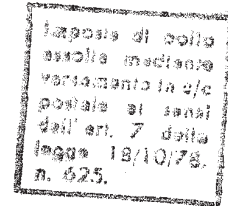 Imposta di bollo
assolta mediante
versamento in c/c
postale ai sensi
dell'art. 7 della
legge 18/10/78,
n. 625.